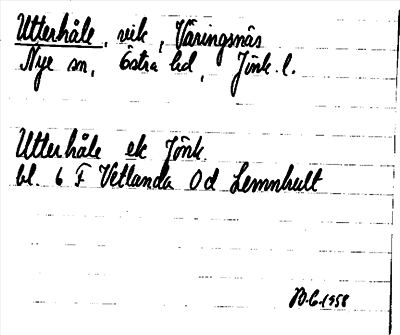 Utterhåle, vik, Väringsnäs
Nye sn, Östra hd, Jönk. l.
Utterhåle ek Jönk.
bl. 6 F Vetlanda 0d Lemnhult
1958